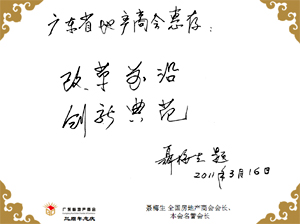 广东省地产商会惠存：
改革前沿
创新典范
聂梅生 题
2011年3月16日
广东省地产商会
二周年志庆
聂梅生 全国房地产商会会长、
本会名誉会长